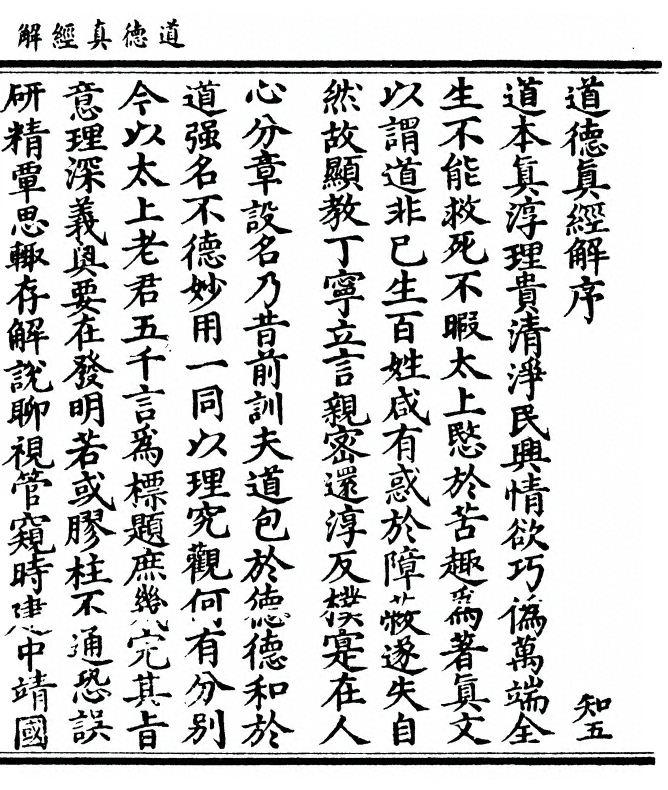 道德真經解
道德眞經解序
知五
道本眞淳理貴清淨民興情欲巧僞萬端全
生不能救死不暇太上愍於苦趣爲著眞文
以謂道非已生百姓咸有惑於障蔽遂失自
然故顯教丁寧立言親密還淳反樸寔在人
心分章設名乃昔前訓夫道包於德德和於
道强名不德妙用一同以理究觀何有分別
今以太上老君五千言爲標題庶幾完其旨
意理深義奧要在發明若或膠柱不通恐誤
研精覃思輙存解說聊視管窺時建中靖國